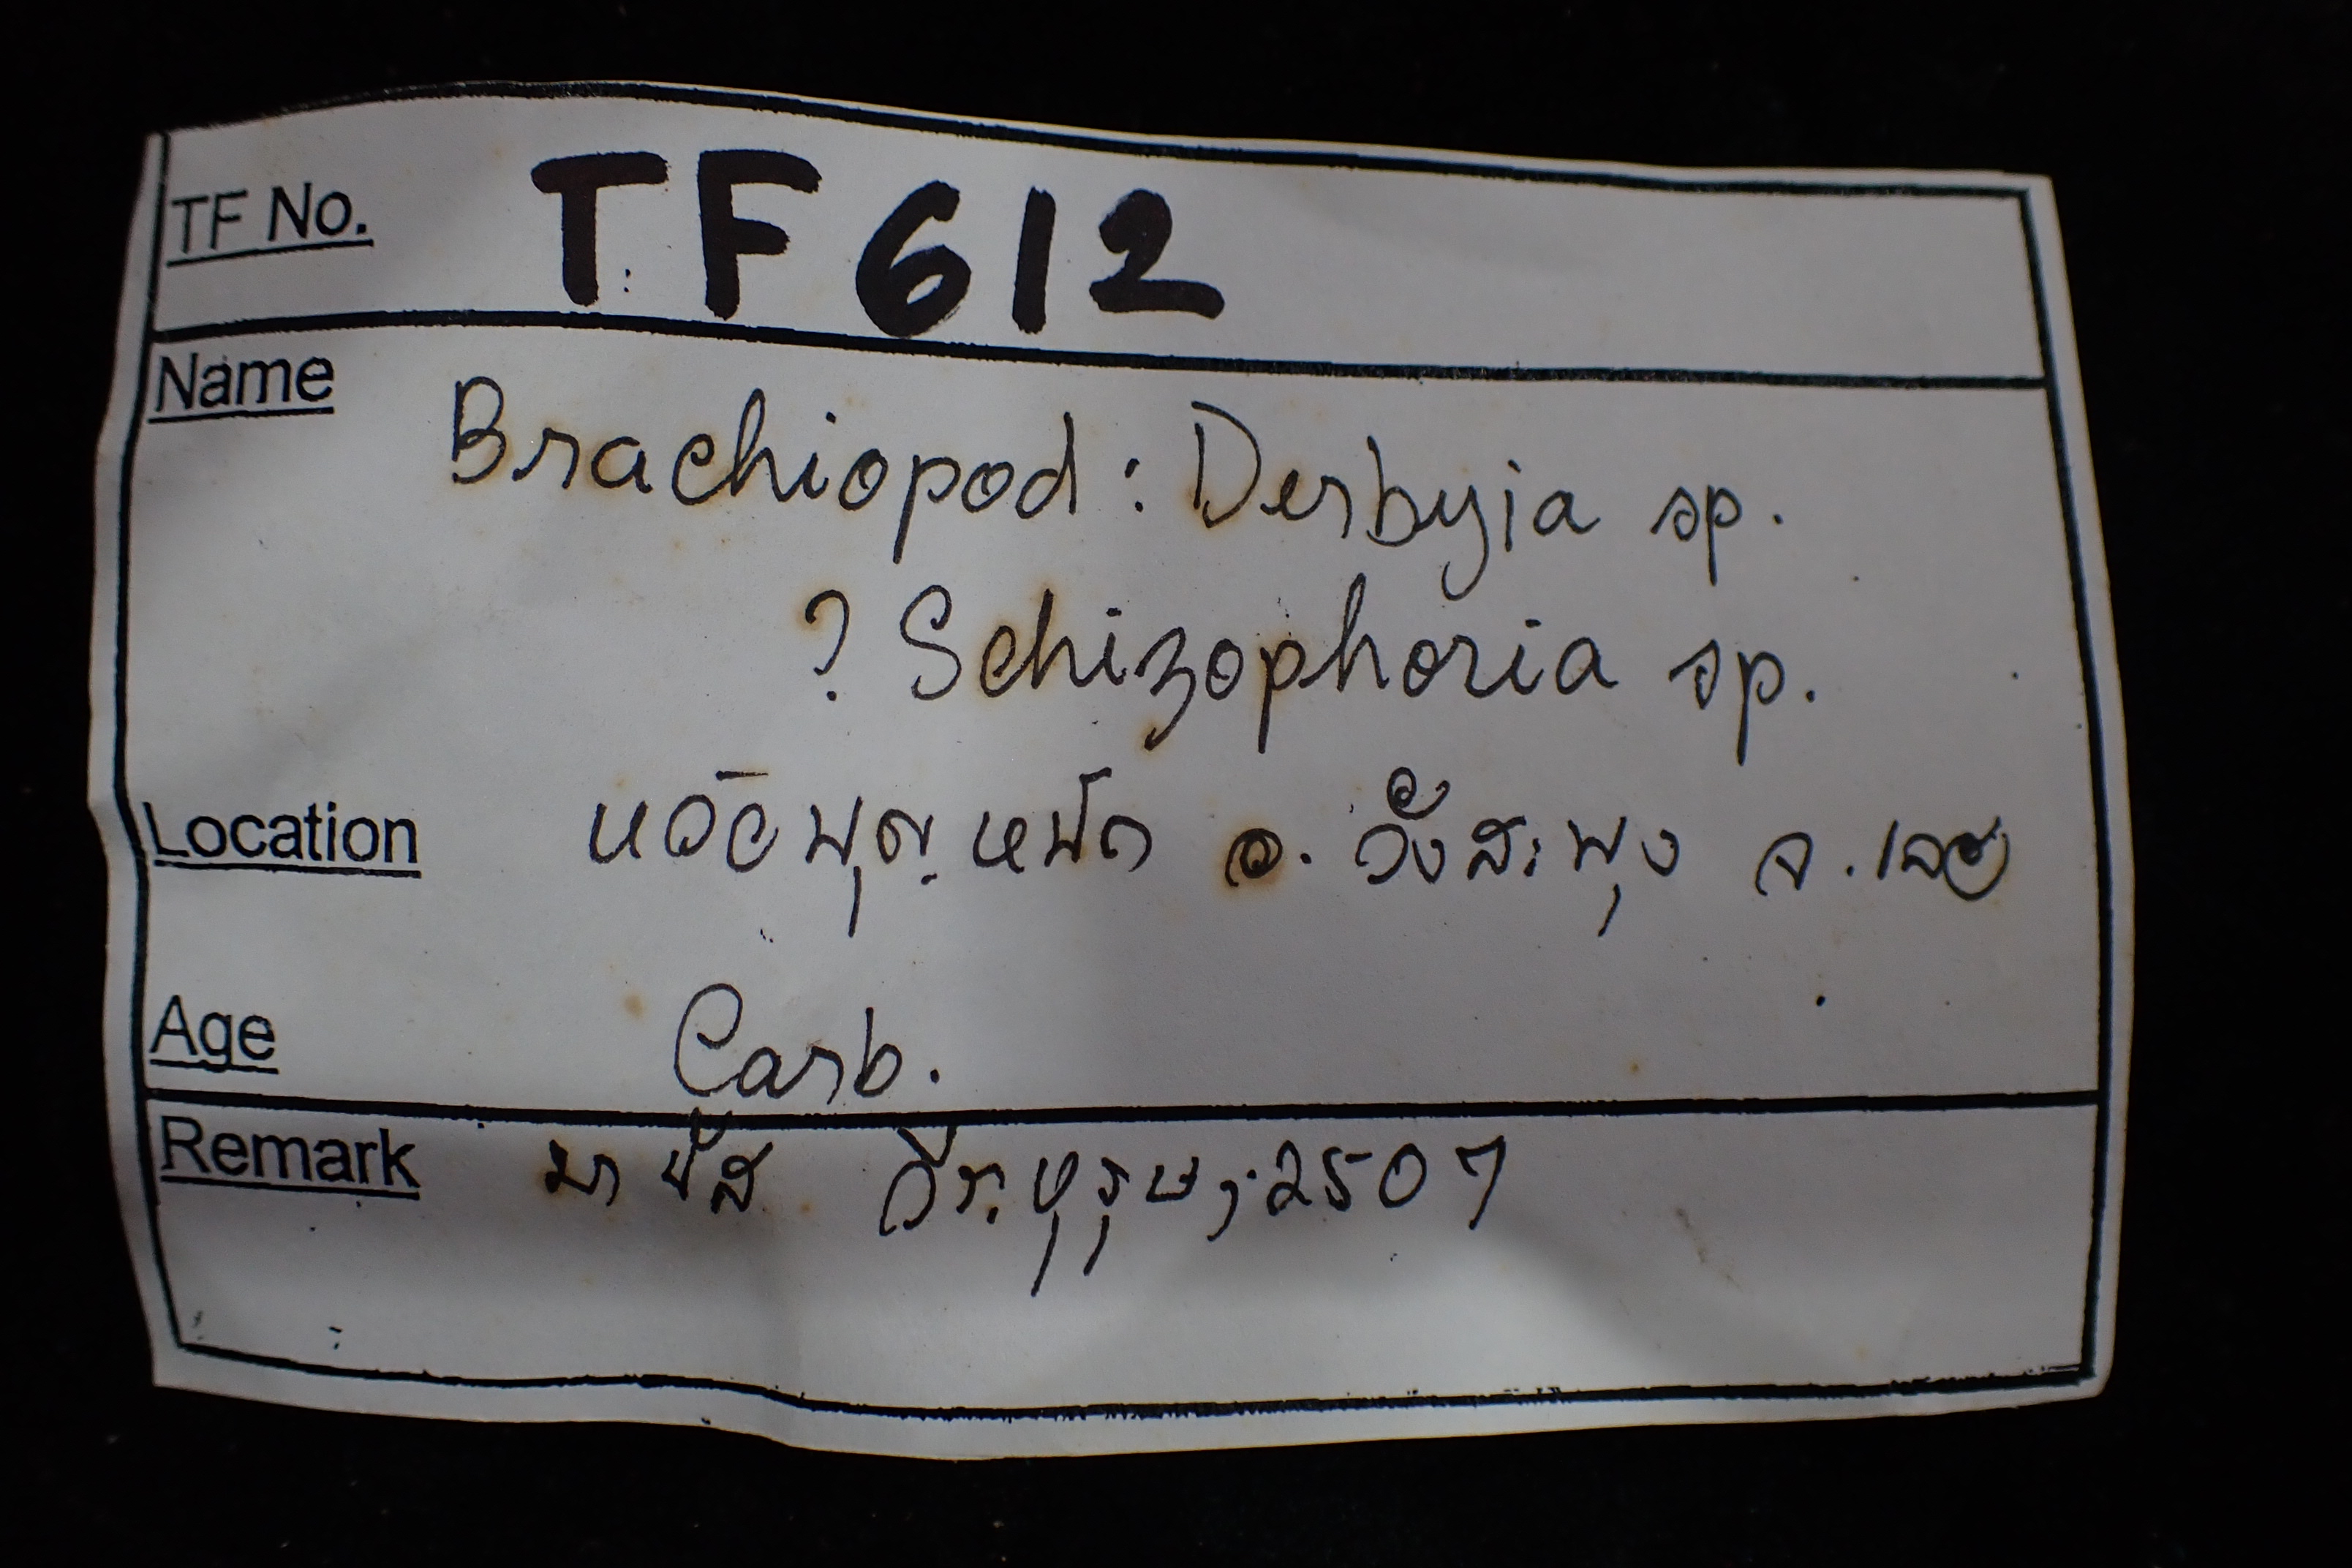 TF No. TF612
Name
Brachiopod : Derbyia sp.
? Schizophoria sp.
Location อ. วังสะพุง จ. เลย
Age Carb.
Remark มานัส วีระบุรุษ, 2507